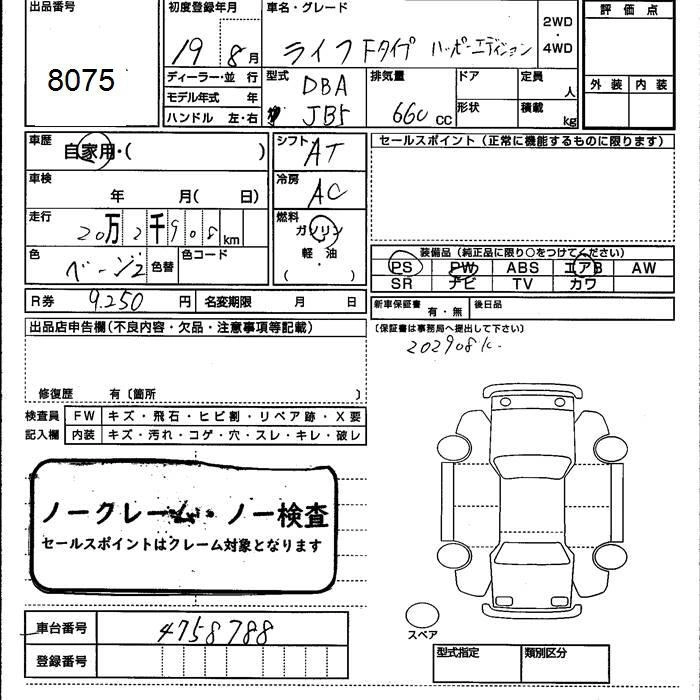 出品番号
8075
初度登録年月
19 8月
ディーラー・並 行
モデル年式 年
ハンドル 左・右
車名・グレード
ライフ Fタイプ ハッピーエディション
2WD
・
4WD
型式
DBA
JB5
排気量
660 cc
ドア
形状
定員
人
積載
kg
評価点
外装 内装
車歴
自家用・( )
車検
年 月( 日)
走行
20万2千908km
色
ベージ2
色替
色コード
R券 9.250 円
名変期限 月 日
シフト
AT
冷房
AC
燃料
ガソリン
軽・油
( ・ )
セールスポイント (正常に機能するものに限ります)
装備品(純正品に限り○をつけてください)
PS PW ABS エアB AW
SR ナビ TV カワ
新車保証書
有・無
後日品
(保証書は事務局へ提出して下さい)
202908K.
出品店申告欄(不良内容・欠品・注意事項等記載)
修復歴 有〔箇所 〕
検査員 FW キズ・飛石・ヒビ割・リペア跡・X要
記入欄 内装 キズ・汚れ・コゲ・穴・スレ・キレ・破レ
ノークレーム・ノー検査
セールスポイントはクレーム対象となります
車台番号 4758788
登録番号
スペア
型式指定 類別区分